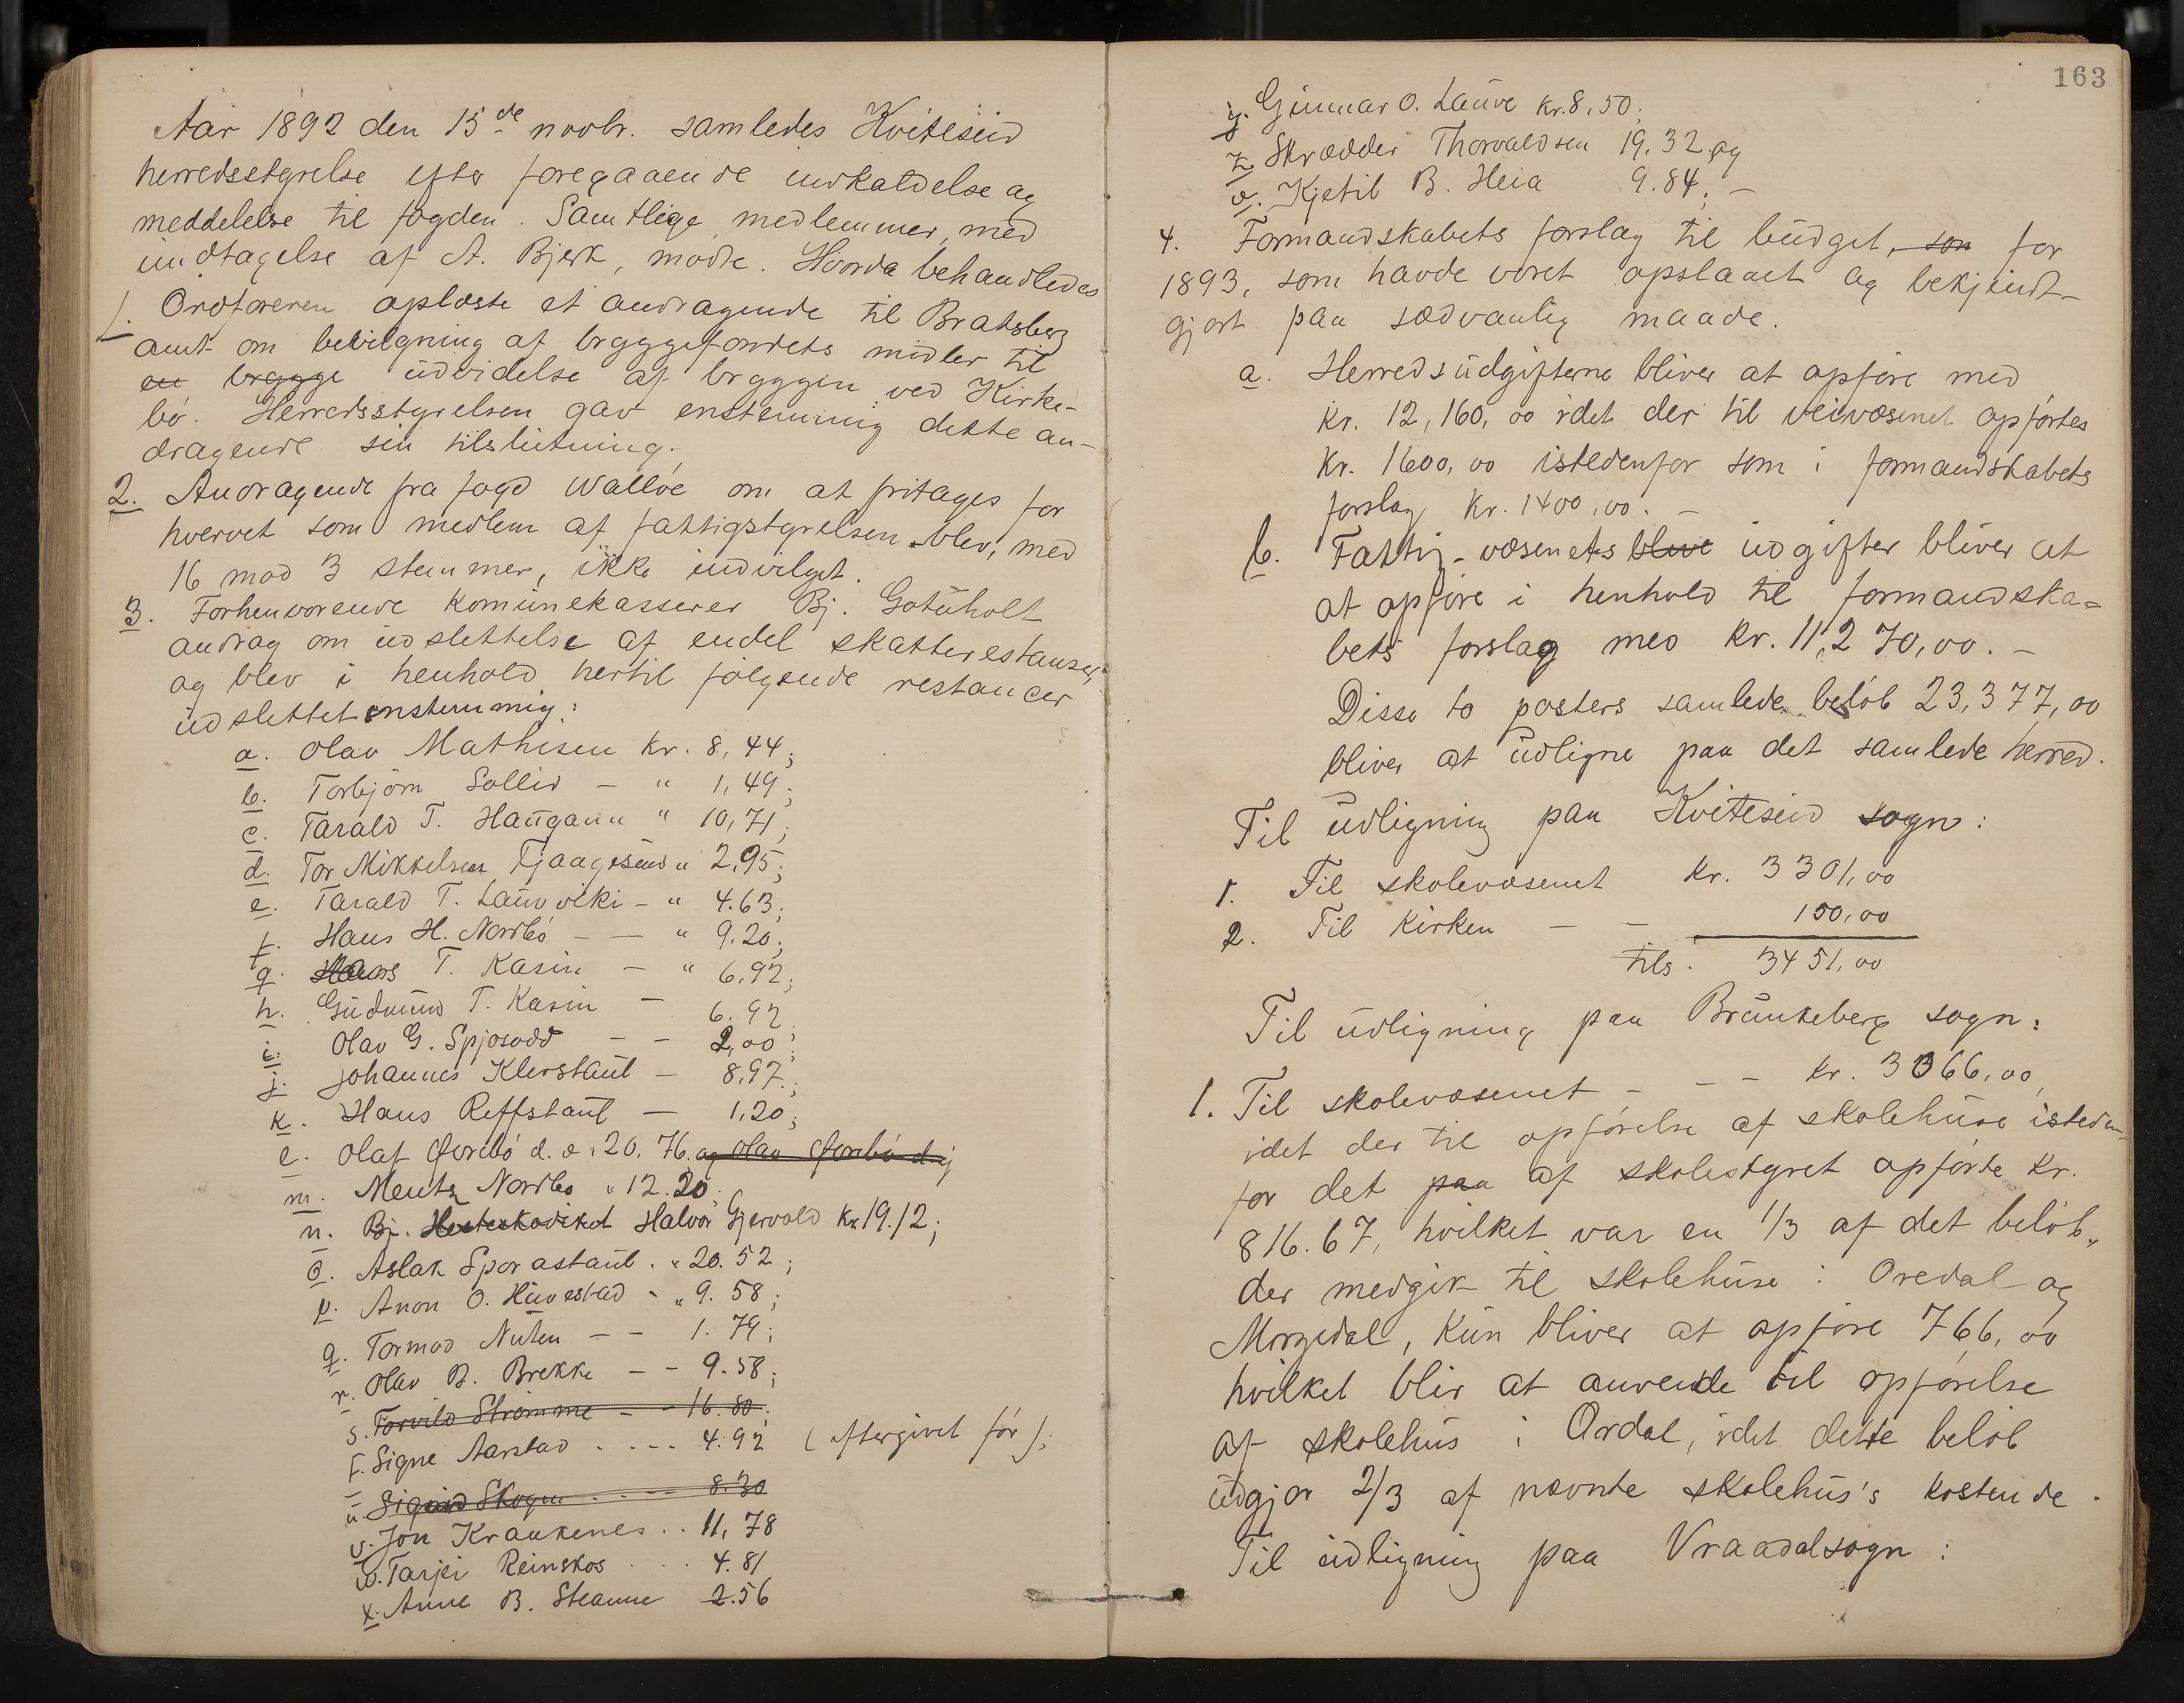 Aar 1892 den 15de novbr. samledes Kviteseid
herredsstyrelse efter foregaaende indkaldelse og
meddelelse til fogden. Samtlige medlemmer, med
undtagelse af A. Bjerk, mødte. Hvorda behandledes
1. Ordføreren oplæste et andragende til Bratsberg
amt om bevilgning af bryggefondets midler til
en brygge udvidelse af bryggen ved Kirke-
bø. Herredsstyrelsen gav enstemmig dette an-
dragende sin tilslutning.
2. Andragende fra fogd Walløe om at fritages for
hvervet som medlem af fattigstyrelsen blev, med
16 mod 3 stemmer, ikke indvilget.
3. Forhenværende kommunekasserer Bj. Gotuholt
andrag om udslettelse af endel skatterestanser,
og blev i henhold hertil følgende restancer
udslettet enstemmig:
a. Olav Mathisen kr. 8,44;
b. Torbjørn Sollid — " 1,49;
c. Tarald T. Haugann " 10,71;
d. Tor Mikkelsen Fjaagesund " 2,95;
e. Tarald T. Lauvviki — " 4.63;
f. Hans H. Nordbö — — " 9.20;
g. Hans T. Kasin — " 6,92;
h. Gudmund T. Kasin — 6.92;
i. Olav G. Spjosodd — — 2,00;
j. Johannes Klerstaul — 8,97;
k. Haus Reffstaul — 1,20;
l. Olaf Garebö d. æ. 20,76. og Olav Garebö d.y
m. Mentz Nordbø " 12.20;
n. Bj. Halvor Gjervold Kr. 19.12;
o. Aslak Sporastaul . " 20.52;
p. Anon O. Haavestad - " 9.58;
q. Tormod Nuten — — 1.79;
r. Olav B. Brekke — — 9.58;
s. Torvild Strømme — — 16.80;
t. Signe Aarstad . . . . 4.92 (eftergivet før);
u. Sigrid Skogen . . . — 8.30
v. Jon Kraakenes . . 11,78
w. Tarjei Reinskos . . . 4.81
x. Anne B. Steanne 2.56
163
y. Gunnar O. Lauve kr. 8,50;
z. Skrædder Thorvaldsen 19,32 og
ø. Kjetil B. Heia 9.84; —
4. Formandskabets forslag til budget, som for
1893, som havde været opslaaet og bekjendt-
gjort paa sædvanlig maade.
a. Herredsudgifterne bliver at opføre med
kr. 12,160,00 idet der til veivæsenet opførtes
kr. 1600,00 istedenfor som i formandskabets
forslag kr. 1400,00. —
b. Fattig-væsenets blive udgifter bliver at
at opføre i henhold til formandska=
bets forslag med kr. 11,270,00. —
Disse to posters samlede beløb 23,377,00
bliver at udligne paa det samlede herred.
Til udligning paa Kviteseid sogn:
1. Til skolevæsenet kr. 3301,00
2. Til kirken — — 150,00
tils. 3451,00
Til udligning paa Brunkeberg sogn:
1. Til skolevæsenet — — — kr. 3066,00,
idet der til opførelse af skolehuse isteden-
for det paa af skolestyret opførte kr.
816.67, hvilket var en 1/3 af det beløb,
der medgik til skolehuse i Oredal og
Morgedal, kun bliver at opføre 766,00
hvilket blir at anvende til opførelse
af skolehus i Ordal, idet dette beløb
udgjør 2/3 af nævnte skolehus's kostende.
Til udligning paa Vraadalsogn: